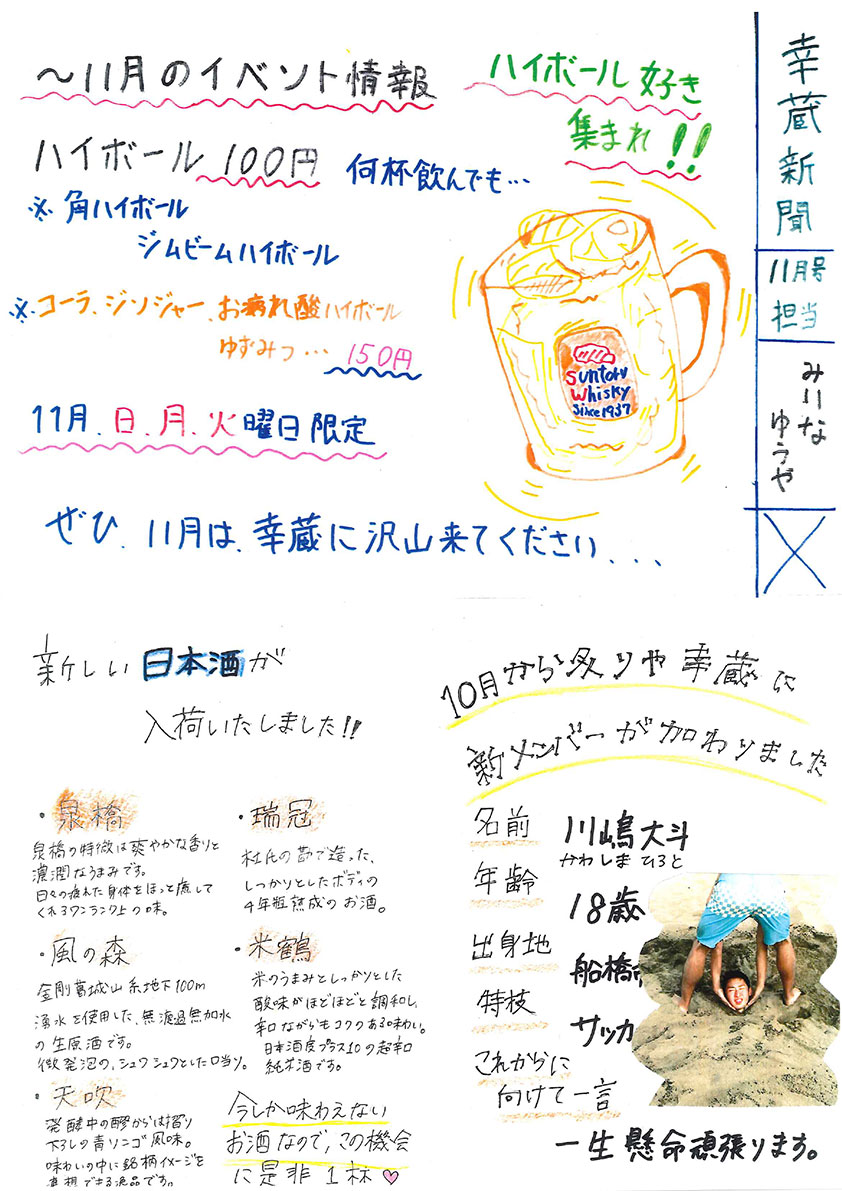 幸蔵新聞
11月号
担当
みりな
ゆうや
〜11月のイベント情報
ハイボール好き
集まれ!!
ハイボール 100円 何杯飲んでも…
※角ハイボール
ジムビームハイボール
※コーラ、ジンジャー、お疲れ酸ハイボール
ゆずみつ… 150円
Suntory
Whisky
Since 1937
11月、日、月、火曜日限定
ぜひ、11月は、幸蔵に沢山来てください...
新しい日本酒が
入荷いたしました!!
・泉橋
泉橋の特徴は爽やかな香りと
濃潤なうまみです。
日々の疲れた身体をほっと癒して
くれるワンランク上の味。
・瑞冠
杜氏の勘で造った、
しっかりとしたボディの
4年瓶熟成のお酒。
・風の森
金剛葛城山系地下100m
湧水を使用した、無濾過無加水
の生原酒です。
微発泡の、シュワシュワとした口当り。
・米鶴
米のうまみとしっかりとした
酸味がほどほどと調和し、
辛口ながらもコクのある味わい。
日本酒度プラス10の超辛口
純米酒です。
・天吹
発酵中の醪からは摺り
下ろしの青リンゴ風味。
味わいの中に銘柄イメージを
真想できる逸品です。
今しか味わえない
お酒なので、この機会
に是非1杯♡
10月から炙りや幸蔵に
新メンバーが加わりました
名前 川嶋大斗
かわしま ひろと
年齢 18歳
出身地 船橋
特枝 サッカ
これからに
向けて一言
一生懸命頑張ります。